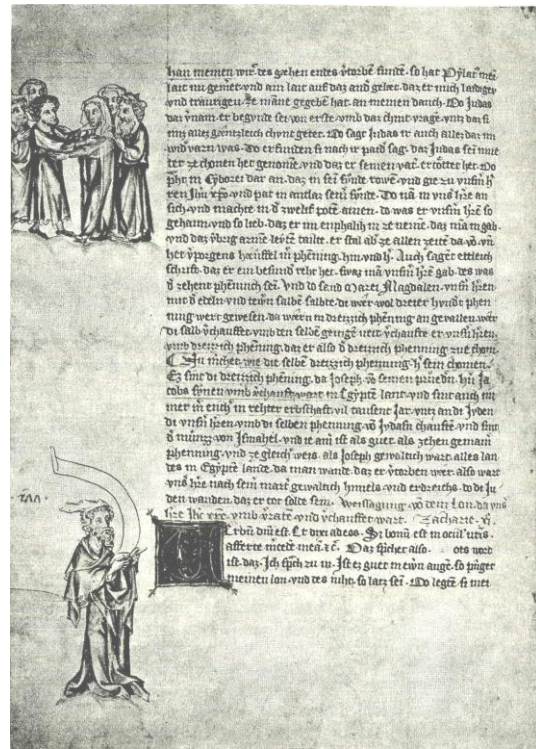 han meinen wir des gæhen endes v̓torbē sunte · so hat Pylat̄ mei
lait mi gemet vnd am lait auf daz and̓ gelett · daz er mich
vnd traurigen ze mane gegebē hat · an meinen danch · Do Judas
daz v̓nam · er begunde sei von erste · vmb daz chint vrage · vntz daz si
im allez gæntzleich chvnt getet · Do sagt Judas ir auch allez daz im
wid̓ varn was · Do er funden si nach ir paid̓ sag · daz Judas sei mue
ter ze chonen het genome · vnd daz er seinen vat̓ ertöttet het · Do
pht̄ in Cyborei dar an · daz in sei sunde rowē · vnd gie zu vnsm h̓
ren Jh̄u xp̄o vnd pat in antlaz seiner sunde · Do nā in vns h̓re an
sich · vnd machte in d̓ zwelif potē ainen · do was er vnsm h̓ren so
gehaim · vnd so lieb · daz er im enphalih ze neme · daz mā im gab
vnd daz v̓brig arme levtē tailte · er stal ab̓ ze allen zeitē da vō
her · Auch sagēt ettleich
schrift · daz er ein besund̓ reht het · swaz mā vnsm h̓re gab · des was
d̓ zehent phennich sei · vnd do send̓ Marei Magdalen · vnsm h̓ren
mit d̓ edeln vnd tewrn salbē salbte · di wær wol dreier hvnd̓t phen
ning wert gewesen · da wærn im dreizzich phening an gevallen · wær
di salb v̓chauffet · vmb den selbē geitige neit v̓chaufte er vnsn h̓ren
vmb dreizzich phenning · daz er also d̓ dreizzich phenning zue chom
Nu michet · wie die selbē dreizzich phenning · h̓ sein chomen ·
Ez sint di dreizzich phening · da Joseph · vō seinen prüedn̄ · hn̄ Ja
cobs synen vmb v̓chauft wart in Egyptē lant · vnd sint auch im
mer in euch in rehter erbschaft · vil tausent jar · vntz an di Jvden
di vnsn h̓ren vmb di selben phenning · vō Jvdasn chauftē · vnd sint
d̓ münzz von Ismahel · vnd ie ain ist als guet · als zehen gemain
phenning · vnd ze gleich̓ weis · als Joseph gewaltich wart · alles lan
des in Egyptē lande · da man wande · daz er v̓torben wer · also wart
vns h̓re nach seim mart̓ gewaltich himels vnd erdreichs · do di Ju
den wanden · daz er tot solte sein · Weissagung vō dem lon · da vns
h̓re Ihc xr̄c vmb v̓ratē vnd v̓chauffet wart · Zacharie · xi ·
Verbū dn̄i est · Et dixi ad eos · Si bonū est in ocul' uris ·
afferte m̄cedē meā · ⁊c̄ · Daz sp̓chet also · ots wort
ist · daz · Ich sp̓ch zu in · Ist ez guet in ewrn augē · so pri̓get
meinen lon · vnd des niht · so lazz sei · Do legtē si mei